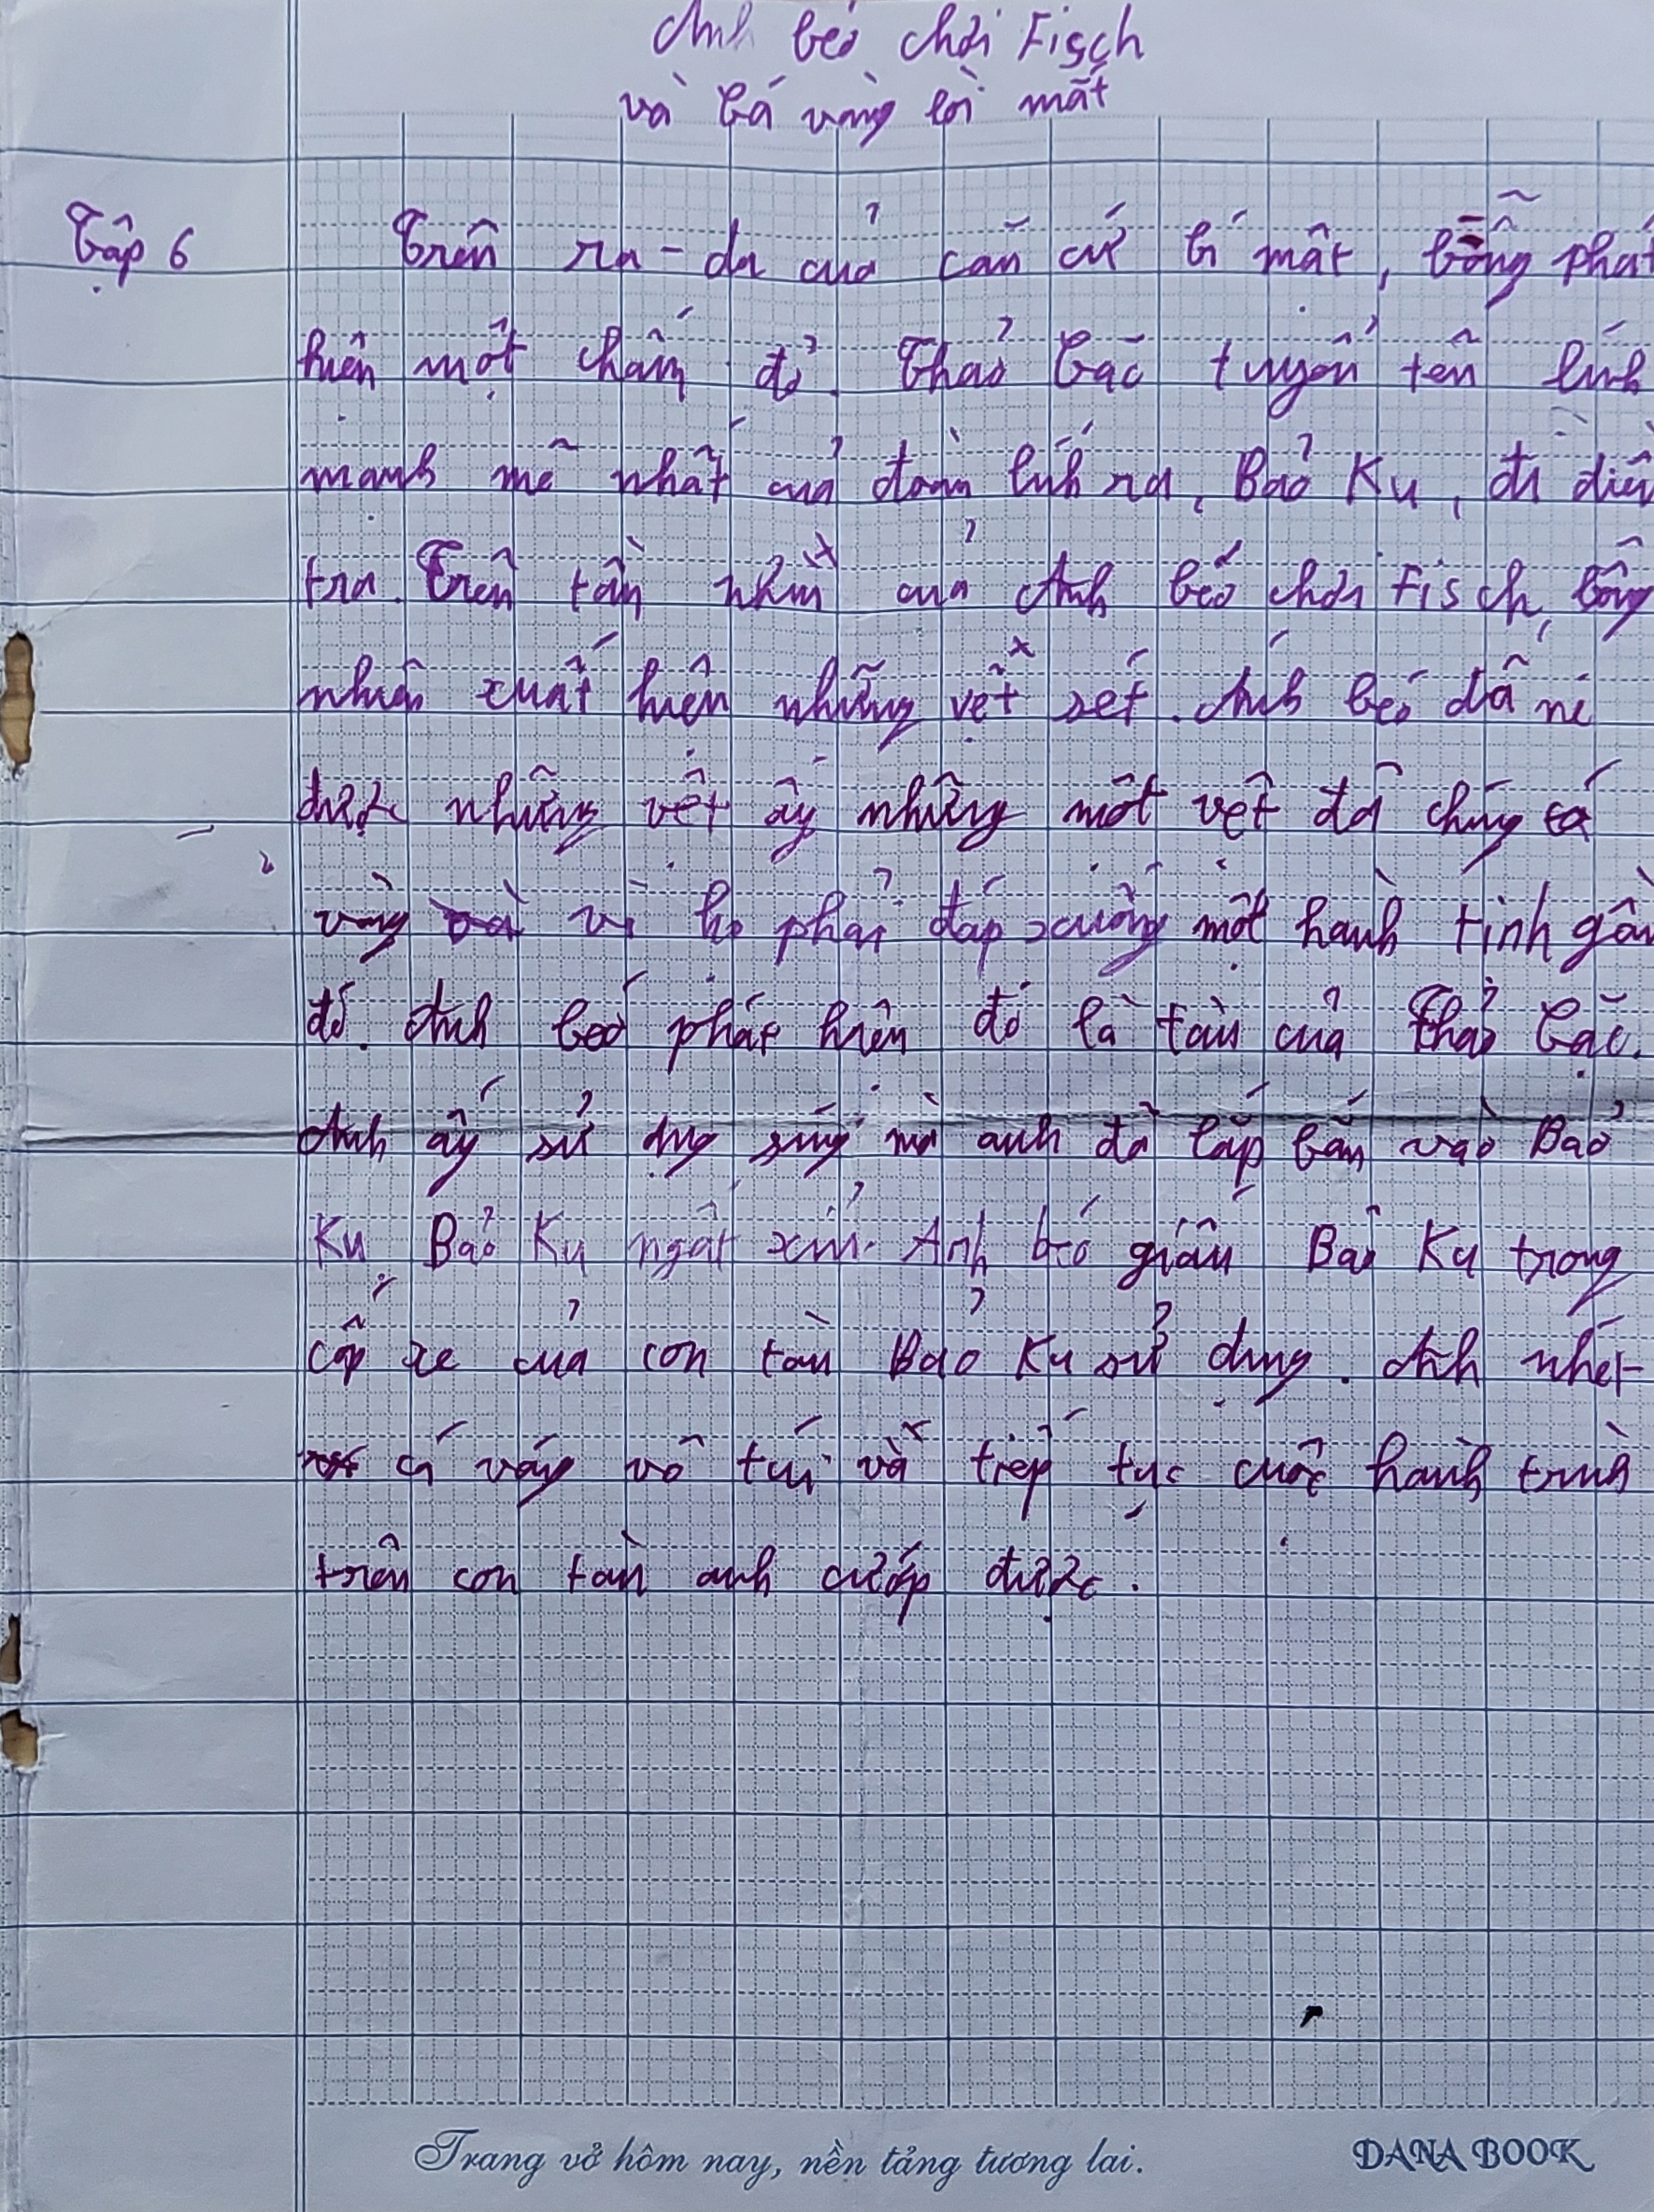 Anh béo chơi Fisch
và cá vàng lòi mắt
Tập 6
Trên ra-da của căn cứ bí mật, bỗng phát
hiện một chấm đỏ. Thảo Cặc tuyển tên lính
mạnh mẽ nhất của đoàn lính ra, Bảo Ku, đi điều
tra. Trên tầm nhìn của Anh béo chơi Fisch, bỗng
nhiên xuất hiện những vệt sét. Anh béo đã né
được những vệt ấy nhưng một vệt đã chúng cá
vàng vì họ phải đáp xuống một hành tinh gần
đó. Anh béo phát hiện đó là tàu của Thảo Cặc.
Anh ấy sử dụng súng mà anh đã lắp bắn vào Bảo
Ku. Bảo Ku ngất xỉu. Anh béo giấu Bảo Ku trong
cốp xe của con tàu Bảo Ku sử dụng. Anh nhét
cá vàng vô túi và tiếp tục cuộc hành trình
trên con tàu anh cướp được.
Trang vở hôm nay, nền tảng tương lai.
DANA BOOK